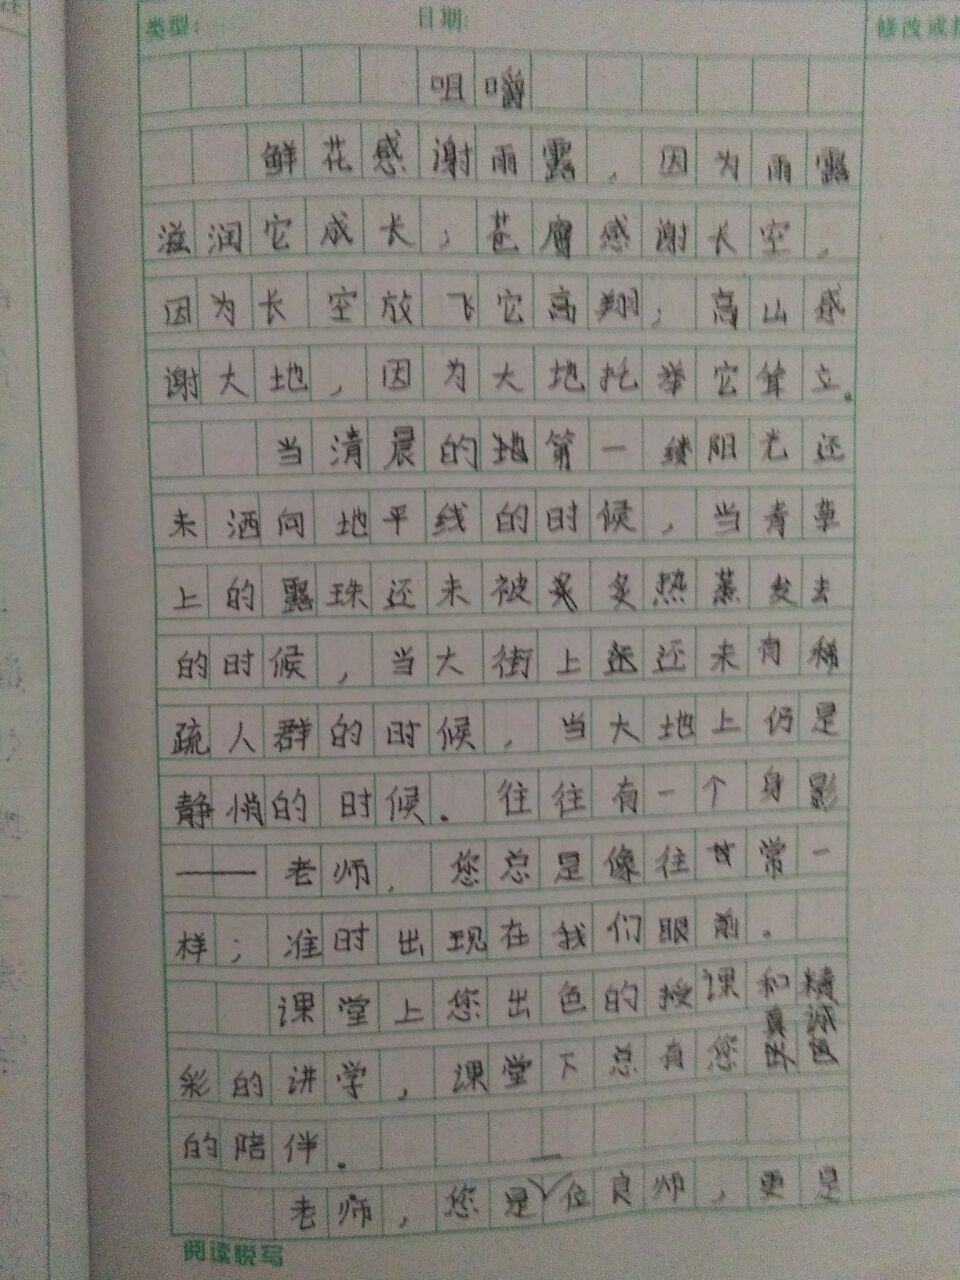 类型: 日期: 修改或
咀嚼
鲜花感谢雨露,因为雨露
滋润它成长;苍鹰感谢长空,
因为长空放飞它高翔;高山感
谢大地,因为大地托举它耸立。
当清晨的地第一缕阳光还
未洒向地平线的时候,当青草
上的露珠还未被炙炙热蒸发去
的时候,当大街上还还未有稀
疏人群的时候,当大地上仍是
静悄的时候.往往有一个身影
——老师.您总是像往常一
样;准时出现在我们眼前。
课堂上您出色的授课和精
彩的讲学,课堂下总有您真诚
的陪伴.
老师,您是一位良师,更是
阅读悦写